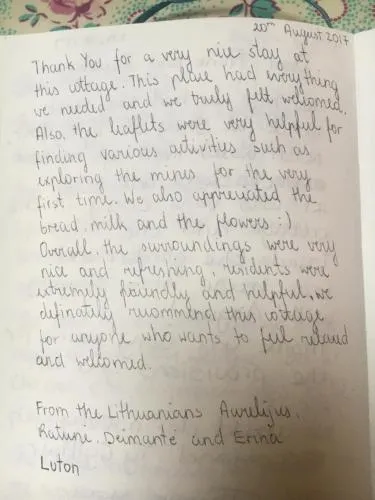 20th August 2017
Thank You for a very nice stay at
this cottage. This place had everything
we needed and we truly felt welcomed.
Also, the leaflets were very helpful for
finding various activities such as
exploring the mines for the very
first time. We also appreciated the
bread, milk and the flowers :)
Overall, the surroundings were very
nice and refreshing, residents were
extremely friendly and helpful, we
definately recommend this cottage
for anyone who wants to feel relaxed
and welcomed.
From the Lithuanians Aurelijus,
Raminė, Deimantė and Erina
Luton